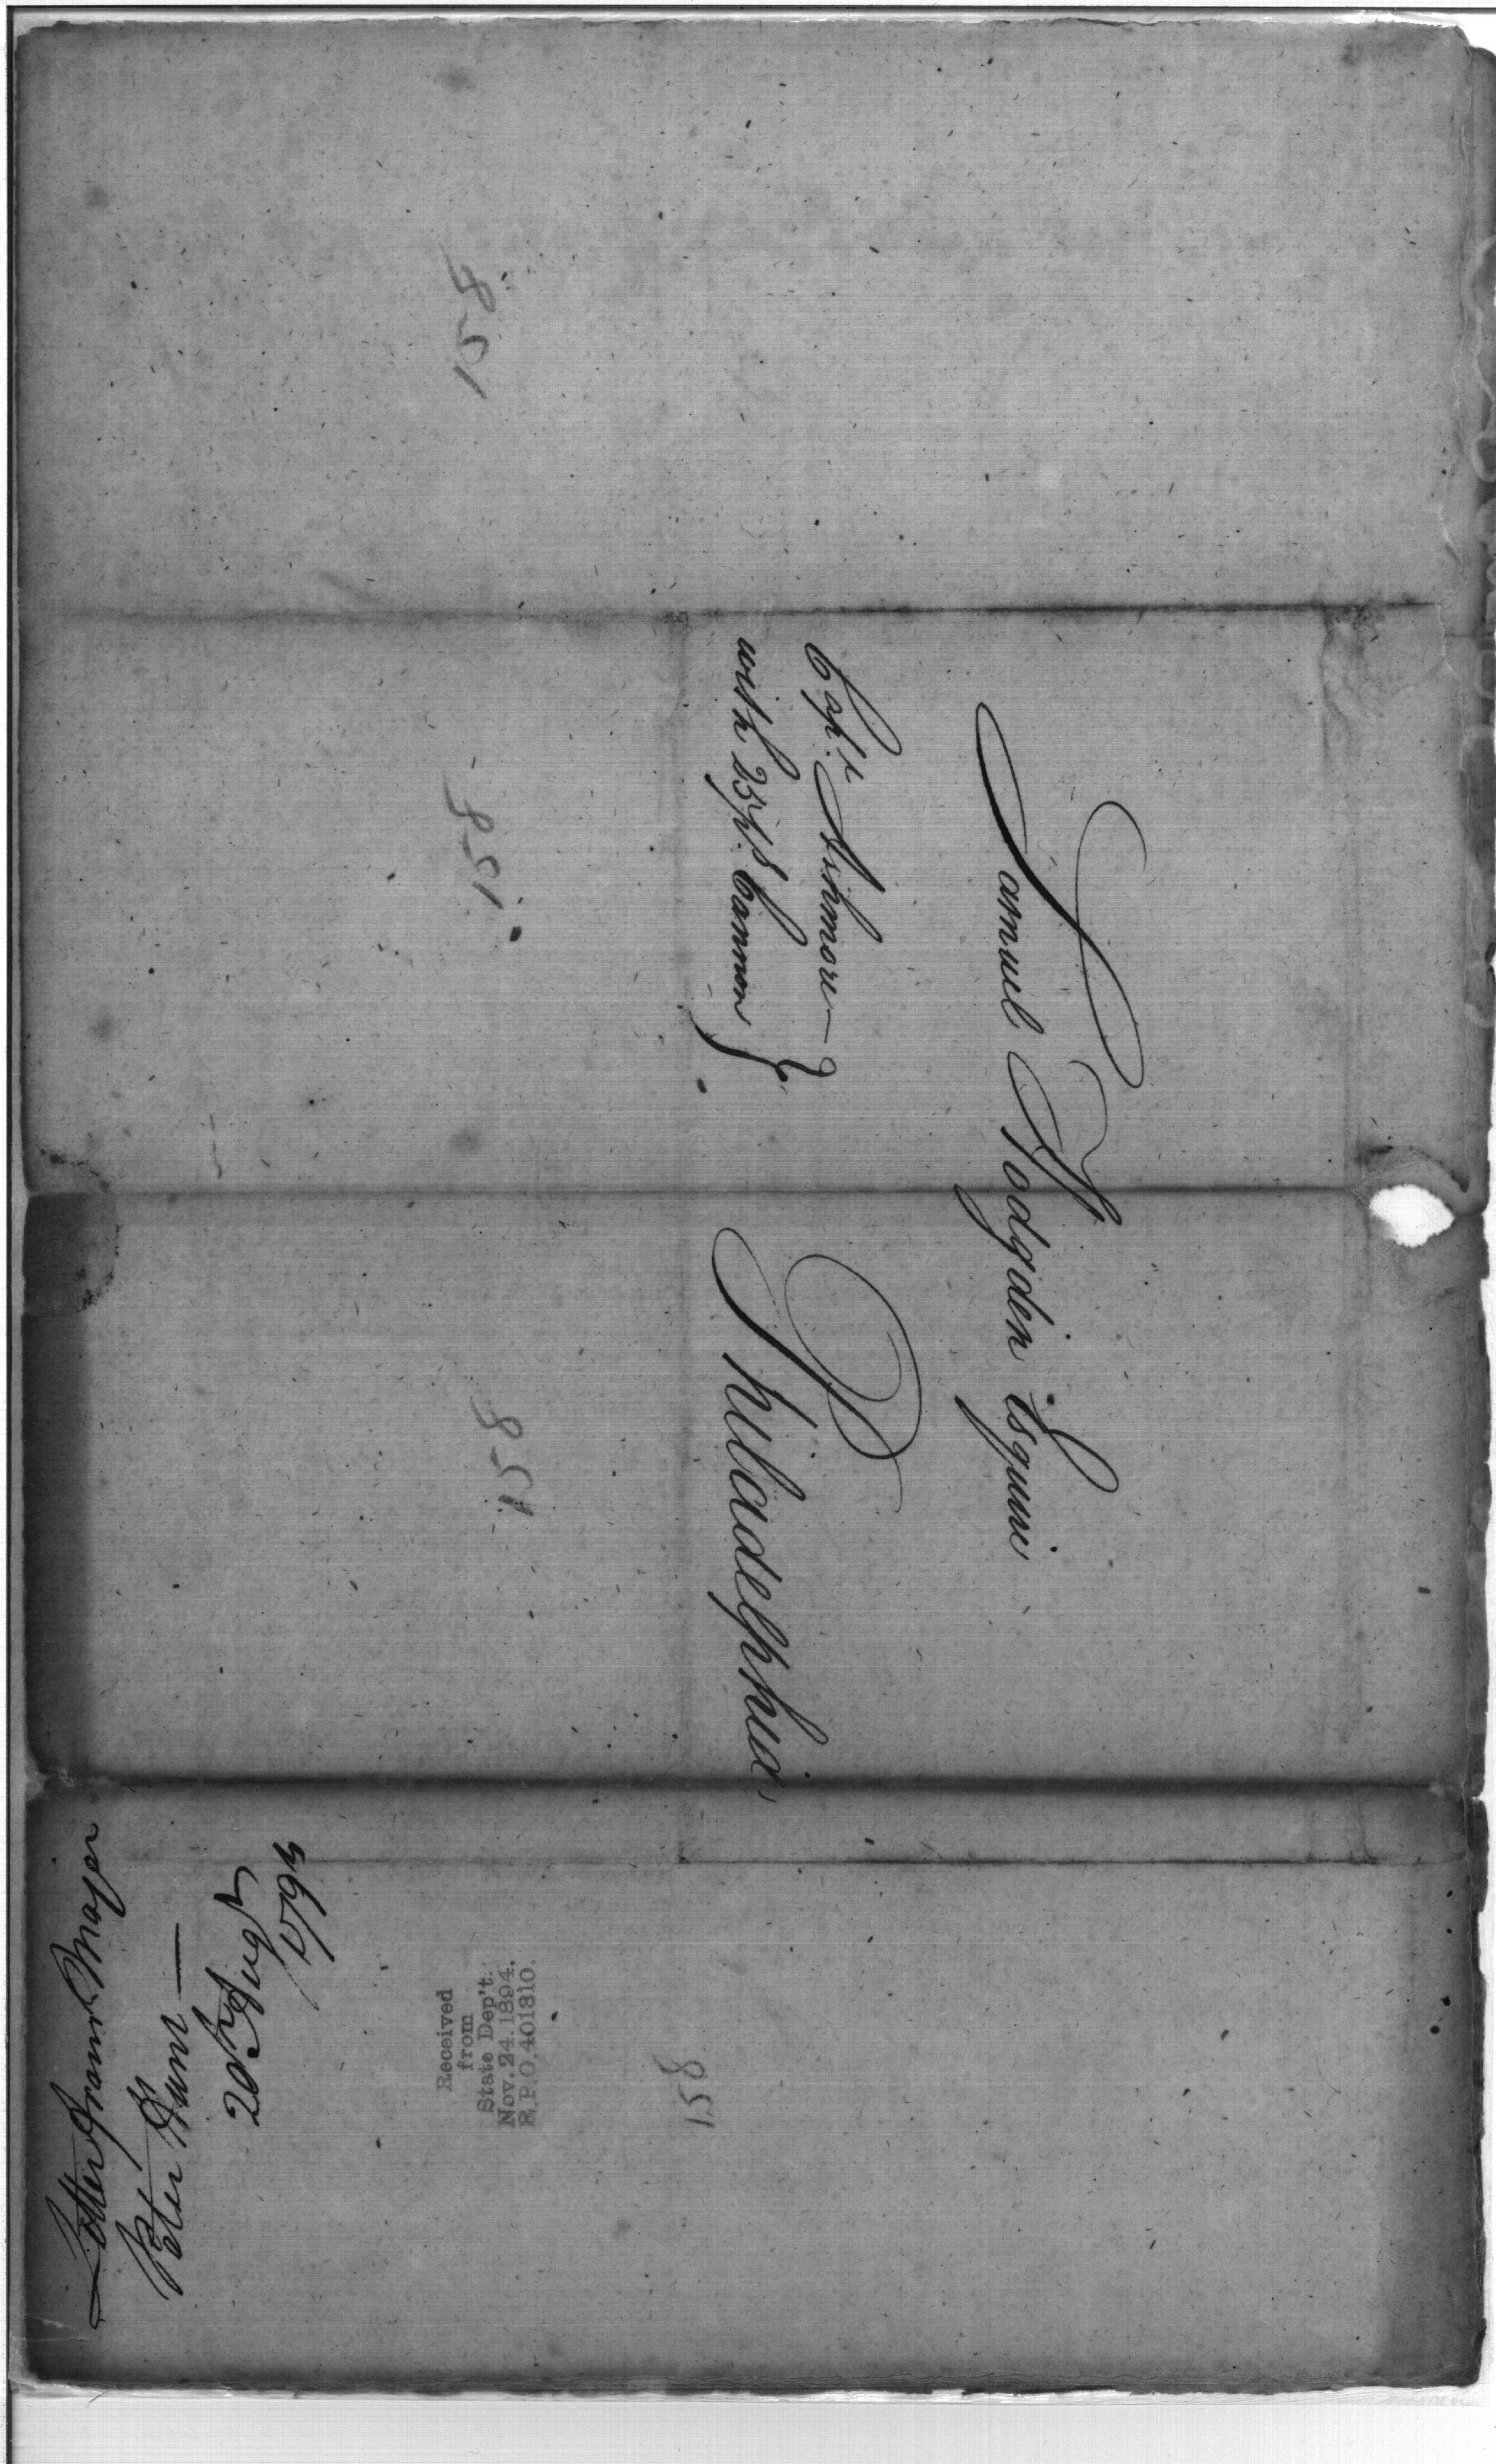 Samuel Hodgden Esquire
Philadelphia
Capt. Ashmore
with 25 ps. Cannon
Letter from Major
Peter Gunn
20th Augt
1794
Received
from
State Dep't.
Nov. 24. 1894.
R.P.O. 401310.
158
158
158
158